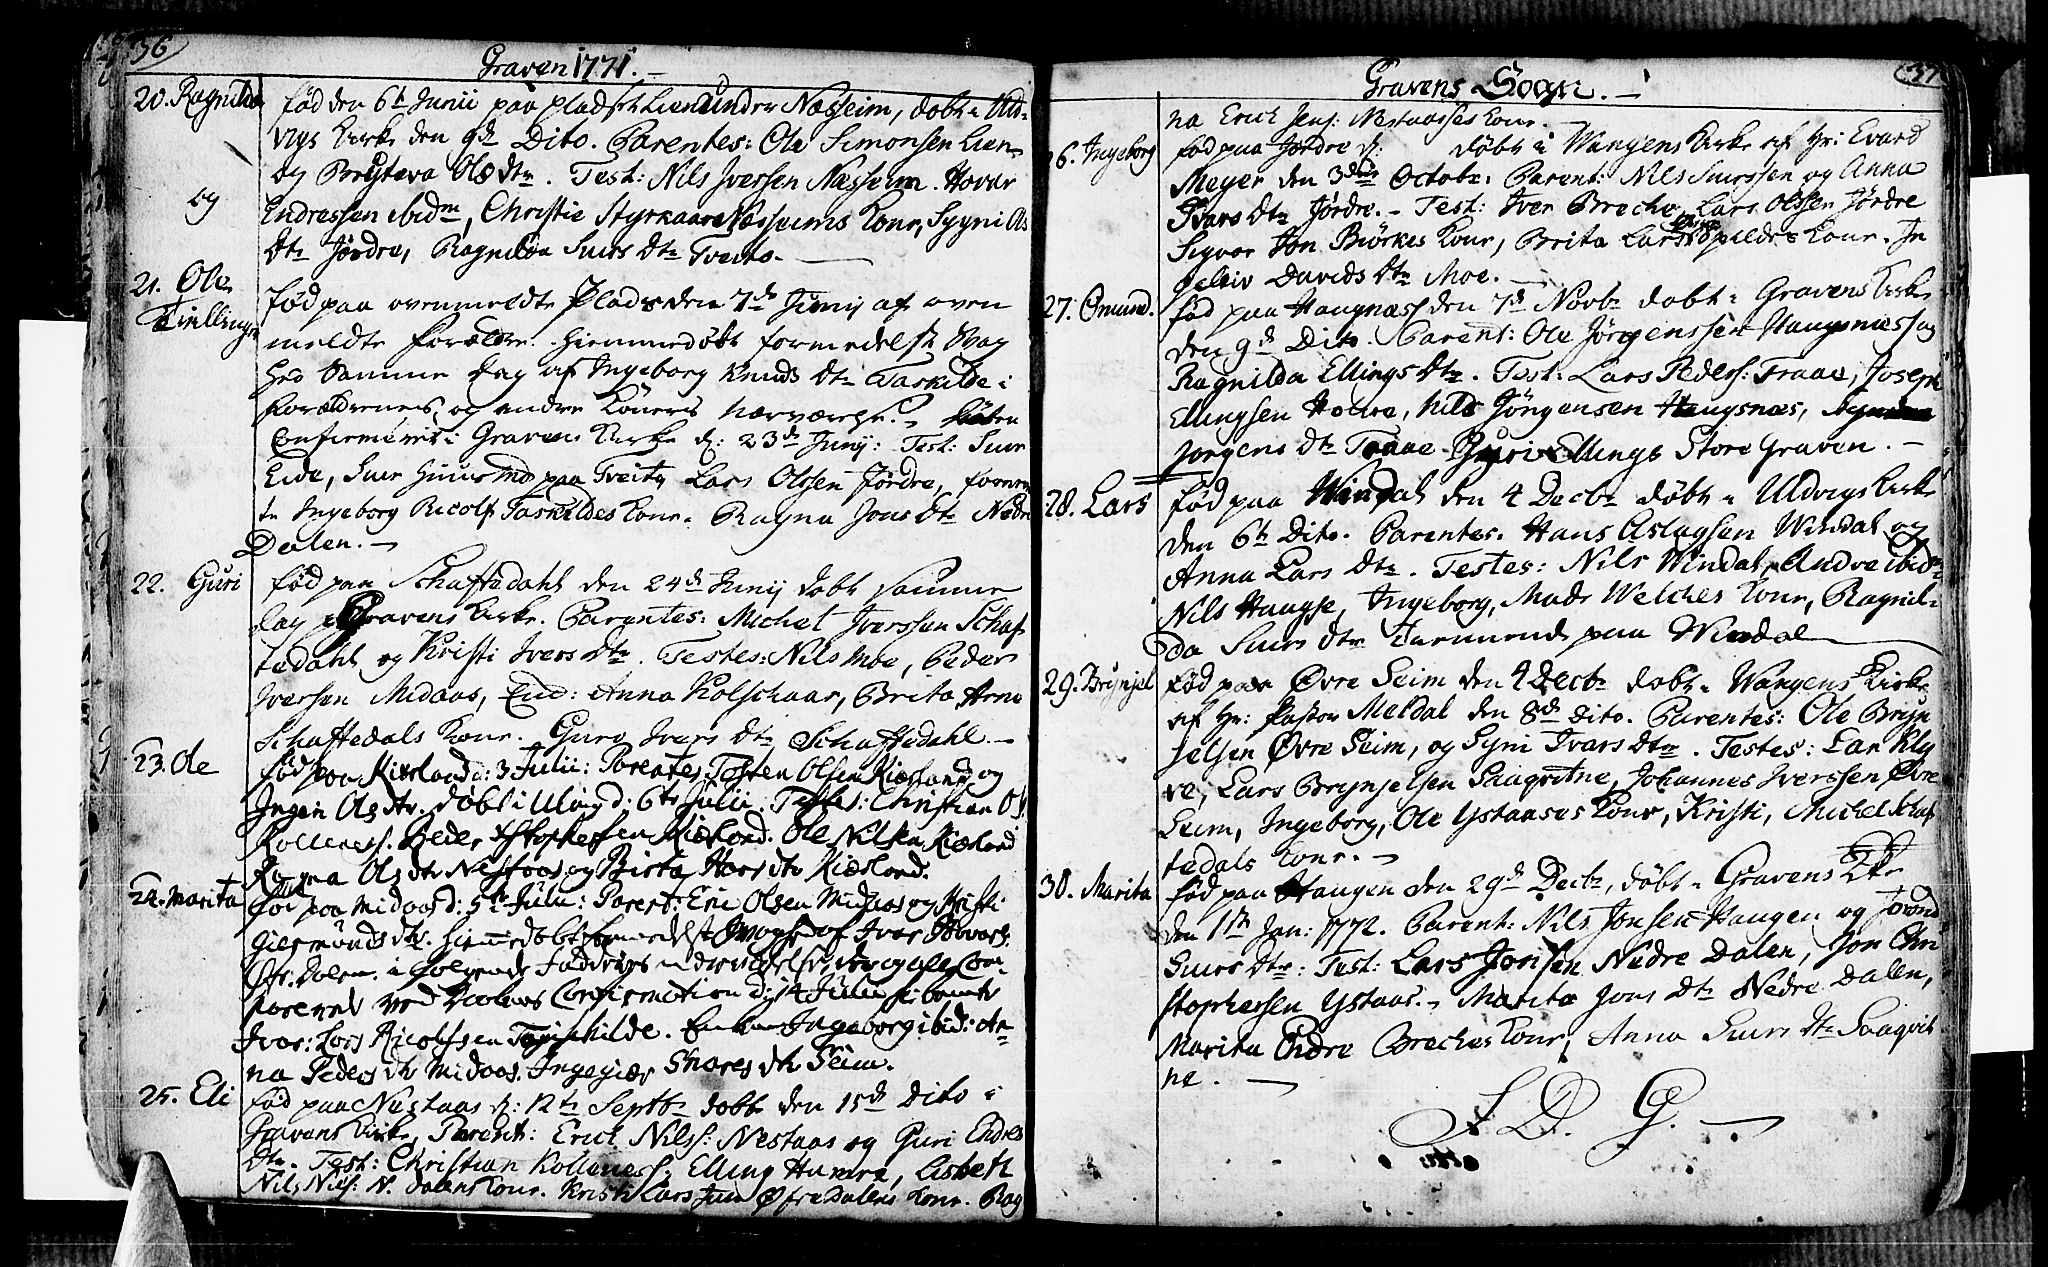 36
Graven 1771. –
20. Ragnilda
og
fød den 6te Junii paa pladset Lien under Næsheim, døbt i Uld-
vigs Kirke den 9de Dito. Parentes: Ole Simonsen Lien
og Brytteva Ols dtr. Test: Nils Iversen Næsheim. Hovar
Endressen ibidm, Christie Styrkaar Næsheims Kone, Sygni As
dtr Jørdre, Ragnilda Siurs dtr Tveito.
21. Ole
Tvillinger
fød paa ovenmeldte Plads den 7de Junij af oven
meldte Forældre. hiemmedøbt formedelst Svag
hed samme dag af Ingeborg Knuds dtr Taskilde i
Forældrenes og andre Koners nærværelse.
Confirmeret i Gravens Kirke d: 23de Junij: Test: Siur
Eide, Siur Huusmd paa Tveito, Lars Olssen Jørdre,
Ingeborg Ricolf Taskildes Kone. Ragna Jons dtr Nedre
Dalen. –
22. Guri
fød paa Schaftedahl den 24de Junij døbt samme
dag i Gravens Kirke. Parentes: Michel Iverssen Schaf
tedahl, og Kristi Ivers dtr. Testes: Nils Moe, Peder
Iversen Midaas, Anna Kolschaar, Brita Arne
Schaftedals Kone. Guro Ivers dtr Schaftedahl. –
23. Ole
fød paa Kierland d: 3 Julii: Parentes Tosten Olsen Kierland og
Ingeri Ols dtr. døbt i Ulvig d: 6te Julii. Testes: Christian Ols
Kollenes. Peder Christophersen Kierland. Ole Nilsen Kierland
Ragna Ols dtr Nestaas og Birta Hans dtr Kierland.
24. Marita
fød paa Midaas d: 5te Julii: Parent: Eric Olsen Midaas og Kristi
Giermunds dtr. Hiemmedøbt formedelst svaghed af Ivar Hovars.
Øfr. Dalen. i følgende Fadderes
ved Confirmation d: 14 Julii
Ivar: Lars Ricolfsen Taskilde. Ingeborg ibid: An-
na Peders dtr Midaas. Ingegier Snores dtr Seim.
25. Eli
fød paa Nestaas d: 12te Septbr døbt den 15de Dito i
Gravens Kirke, Parent: Erich Nilss: Nestaas og Guri Endres
dtr. Test: Christian Kollenes. Elling Hamre, Lisbeth
Nils Niels: N. Dalens Kone. Kristi Lars Øfre Dalens Kone. Rag
37
Gravens Sogn. –
na Erich Jens: Nestaases Kone.
26. Ingeborg
fød paa Jørdre d: døbt i Wangens Kirke af Hr: Evard
Meyer den 3die Octobr. Parent: Nils Siurssen og Anna
Ivars dtr Jørdre. – Test: Iver Breche, Lars Olssen Jørdre
Sigvor Jon Biörkes Kone, Brita Lars Spildes Kone. In
geleiv Davids dtr Moe. –
27. Omund.
fød paa Haugnæss den 7de Novbr døbt i Gravens Kirke
den 9de Dito. Parent: Ole Jørgenssen Haugsnæss og
Ragnilda Ellings dtr. Test: Lars Pederss: Traae, Joseph
Ellingsen Hovre, Nils Jörgensen Haugsnæs,
Jorgens dtr Traae. Guri Ellings Store Graven. –
28. Lars
fød paa Windal den 4 Decbr døbt i Uldvigs Kirke
den 6te Dito. Parentes. Hans Aslagsen Windal og
Anna Lars dtr. Testes: Nils Windal, Andve ibidm
Nils Haugse, Ingeborg, Mads Welches Kone, Ragnil-
da Siurs dtr paa Windal
29. Brynjel
fød paa Øvre Seim den 4 Decbr døbt i Wangens Kirke
af Hr: Pastor Meldal den 8de Dito. Parentes: Ole Bryn
jelsen Øvre Seim, og Syni Ivars dtr. Testes:
Lars Brynjelsen Saaqvitne, Johannes Iverssen Øvre
Seim, Ingeborg, Ole Ystaases Kone, Kristi, Michel Schaf
tedals Kone. –
30. Marita
fød paa Haugen den 29de Decbr, døbt i Gravens Kke
den 1te Jan: 1772. Parent: Nils Jonsen Haugen og Jorond
Siurs dtr: Test: Lars Jonsen Nedre Dalen, Jon Chri
stophersen Ystaas. – Marita Jons dtr Nedre Dalen,
Marita Endre Breches Kone, Anna Siurs dtr Saaqvit
ne. –
S. D. G. –